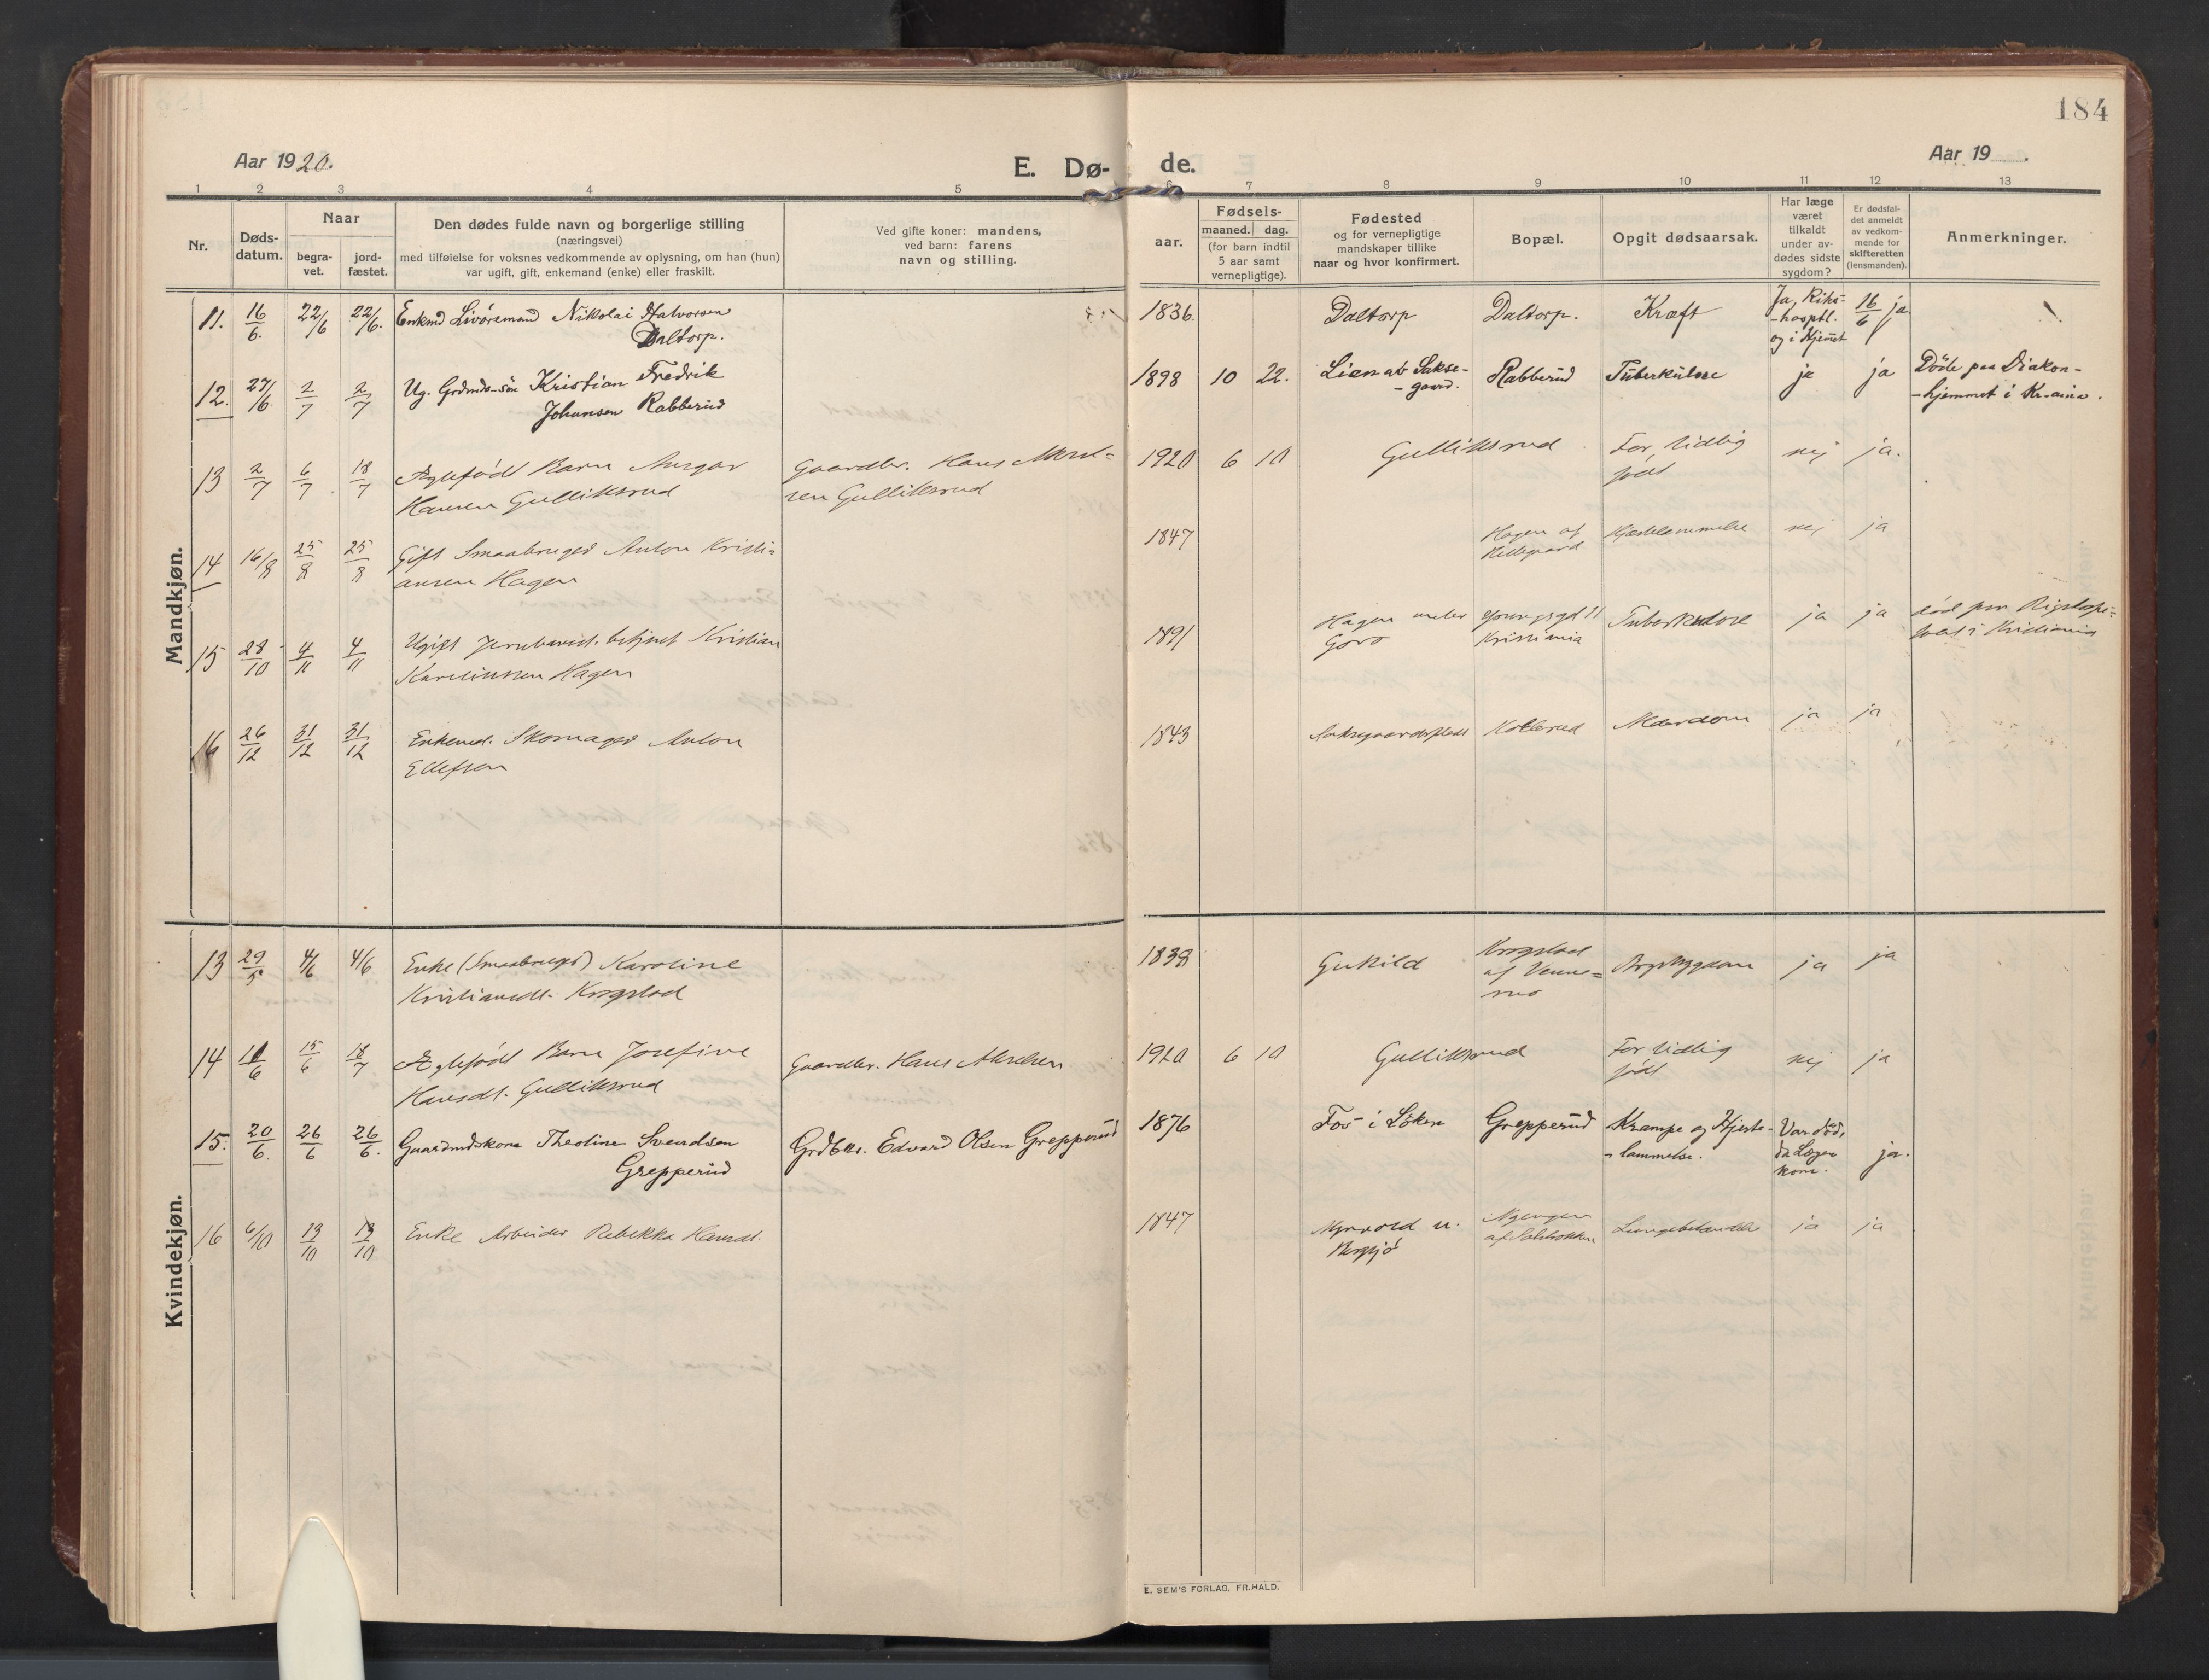 184
Aar 1920.
E. Dø-
de.
Aar 19 .
1 2 3 4 5 6 7 8 9 10 11 12 13
Nr.
Døds-
datum.
Naar
begra-
vet.
jord-
fæstet.
Den dødes fulde navn og borgerlige stilling
(næringsvei)
med tilføielse for voksnes vedkommende av oplysning, om han (hun)
var ugift, gift, enkemand (enke) eller fraskilt.
Ved gifte koner: mandens,
ved barn: farens
navn og stilling.
aar.
Fødsels-
maaned. dag.
(for barn indtil
5 aar samt
vernepligtige).
Fødested
og for vernepligtige
mandskaper tillike
naar og hvor konfirmert.
Bopæl.
Opgit dødsaarsak.
Har læge
været
tilkaldt
under av-
dødes sidste
sygdom?
Er dødsfal-
det anmeldt
av vedkom-
mende for
skifteretten
(lensmanden).
Anmerkninger.
Mandkjøn.
11. 16/6. 22/6 22/6. Enkmd Livöremand Nikolai Halvorsen
Daltorp.
1836. Daltorp Daltorp. Kræft
Ja, Riks-
-hosptl.
og i Hjemet
16/6 ja
12. 27/6. 2/7 2/7 Ug. Grdmds-sön Kristian Fredrik
Johansen Rabberud
1898 10 22. Lien ab Sakse-
-gaard.
Rabberud Tuberkulose ja ja
Döde paa Diakon-
-hjemmet i Kr.ania.
13 2/7 6/7 18/7 Ægtefødt Barn Ansgar
Hansen Gulliksrud
Gaardbr. Hans Aksel=
sen Gulliksrud
1920 6 10 Gulliksrud For tidlig
født
nej ja.
14 16/8 25/8 25/8 Gift Smaabruger Anton Kristi=
ansen Hagen
1847 Hagen af
Hjertelammelse nej ja
15 28/10 4/11 4/11 Ugift Jernbanebetjent Kristian
Karelinssen Hagen
1891 Hagen under
Goro
Youngsgd 11
Kristiania
Tuberkulose ja ja
død paa Rigshospi=
talet i Kristiania
16 26/12 31/12 31/12 Enkemd. Skomager Anton
Ellefsen
1843 Kolterud Alderdom ja ja
Kvindekjøn.
13 29/5 4/6 4/6 Enke (Smaabruger) Karoline
Kristiansdt. Krogstad
1838 Gukild Krogstad
af
Brystsygdom ja ja
14 11/6 15/6 18/7 Ægtefødt Barn Josefine
Hansdt. Gulliksrud
Gaardbr. Hans Akselsen
1920 6 10 Gulliksrud For tidlig
født
nej ja
15. 20/6. 26/6 26/6. Gaardmdskone Theoline Svendsen
Grepperud
Grdbr. Edvard Olsen Grepperud
1876 Fos i Löken Grepperud Krampe og Hjerte-
-lammelse.
Var död,
da Lægen
kom.
ja.
16 6/10 13/10 13/10 Enke Arbeider Rebekka Hansdt.
1847 Myrvold u.
Bergsjö
Lungebetændelse ja ja
E. SEM'S FORLAG, FR.HALD.